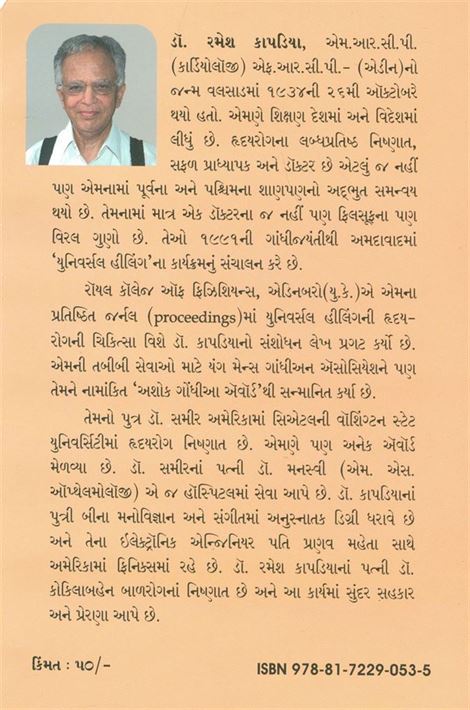 ડૉ. રમેશ કાપડિયા, એમ.આર.સી.પી.
(કાર્ડિયોલૉજી) એફ.આર.સી.પી.– (એડીન)નો
જન્મ વલસાડમાં ૧૯૩૪ની ૨૬મી ઑક્ટોબરે
થયો હતો. એમણે શિક્ષણ દેશમાં અને વિદેશમાં
લીધું છે. હૃદયરોગના લબ્ધપ્રતિષ્ઠ નિષ્ણાત,
સફળ પ્રાધ્યાપક અને ડૉક્ટર છે એટલું જ નહીં
પણ એમનામાં પૂર્વના અને પશ્ચિમના શાણપણનો અદ્ભુત સમન્વય
થયો છે. તેમનામાં માત્ર એક ડૉક્ટરના જ નહીં પણ ફિલસૂફના પણ
વિરલ ગુણો છે. તેઓ ૧૯૯૧ની ગાંધીજયંતીથી અમદાવાદમાં
‘યુનિવર્સલ હીલિંગ’ના કાર્યક્રમનું સંચાલન કરે છે.
રૉયલ કૉલેજ ઑફ ફિઝિશિયન્સ, એડિનબરો(યુ.કે.)એ એમના
પ્રતિષ્ઠિત જર્નલ (proceedings)માં યુનિવર્સલ હીલિંગની હૃદય-
રોગની ચિકિત્સા વિશે ડૉ. કાપડિયાનો સંશોધન લેખ પ્રગટ કર્યો છે.
એમની તબીબી સેવાઓ માટે યંગ મેન્સ ગાંધીઅન ઍસોસિયેશને પણ
તેમને નામાંકિત ‘અશોક ગોંધીઆ ઍવૉર્ડ’થી સન્માનિત કર્યા છે.
તેમનો પુત્ર ડૉ. સમીર અમેરિકામાં સિએટલની વૉશિંગ્ટન સ્ટેટ
યુનિવર્સિટીમાં હૃદયરોગ નિષ્ણાત છે. એમણે પણ અનેક ઍવૉર્ડ
મેળવ્યા છે. ડૉ. સમીરનાં પત્ની ડૉ. મનસ્વી (એમ. એસ.
ઑપ્થેલમોલૉજી) એ જ હૉસ્પિટલમાં સેવા આપે છે. ડૉ. કાપડિયાનાં
પુત્રી બીના મનોવિજ્ઞાન અને સંગીતમાં અનુસ્નાતક ડિગ્રી ધરાવે છે
અને તેના ઇલેક્ટ્રૉનિક એન્જિનિયર પતિ પ્રણવ મહેતા સાથે
અમેરિકામાં ફિનિક્સમાં રહે છે. ડૉ. રમેશ કાપડિયાનાં પત્ની ડૉ.
કોકિલાબહેન બાળરોગનાં નિષ્ણાત છે અને આ કાર્યમાં સુંદર સહકાર
અને પ્રેરણા આપે છે.
કિંમત : ૫૦/-
ISBN 978-81-7229-053-5